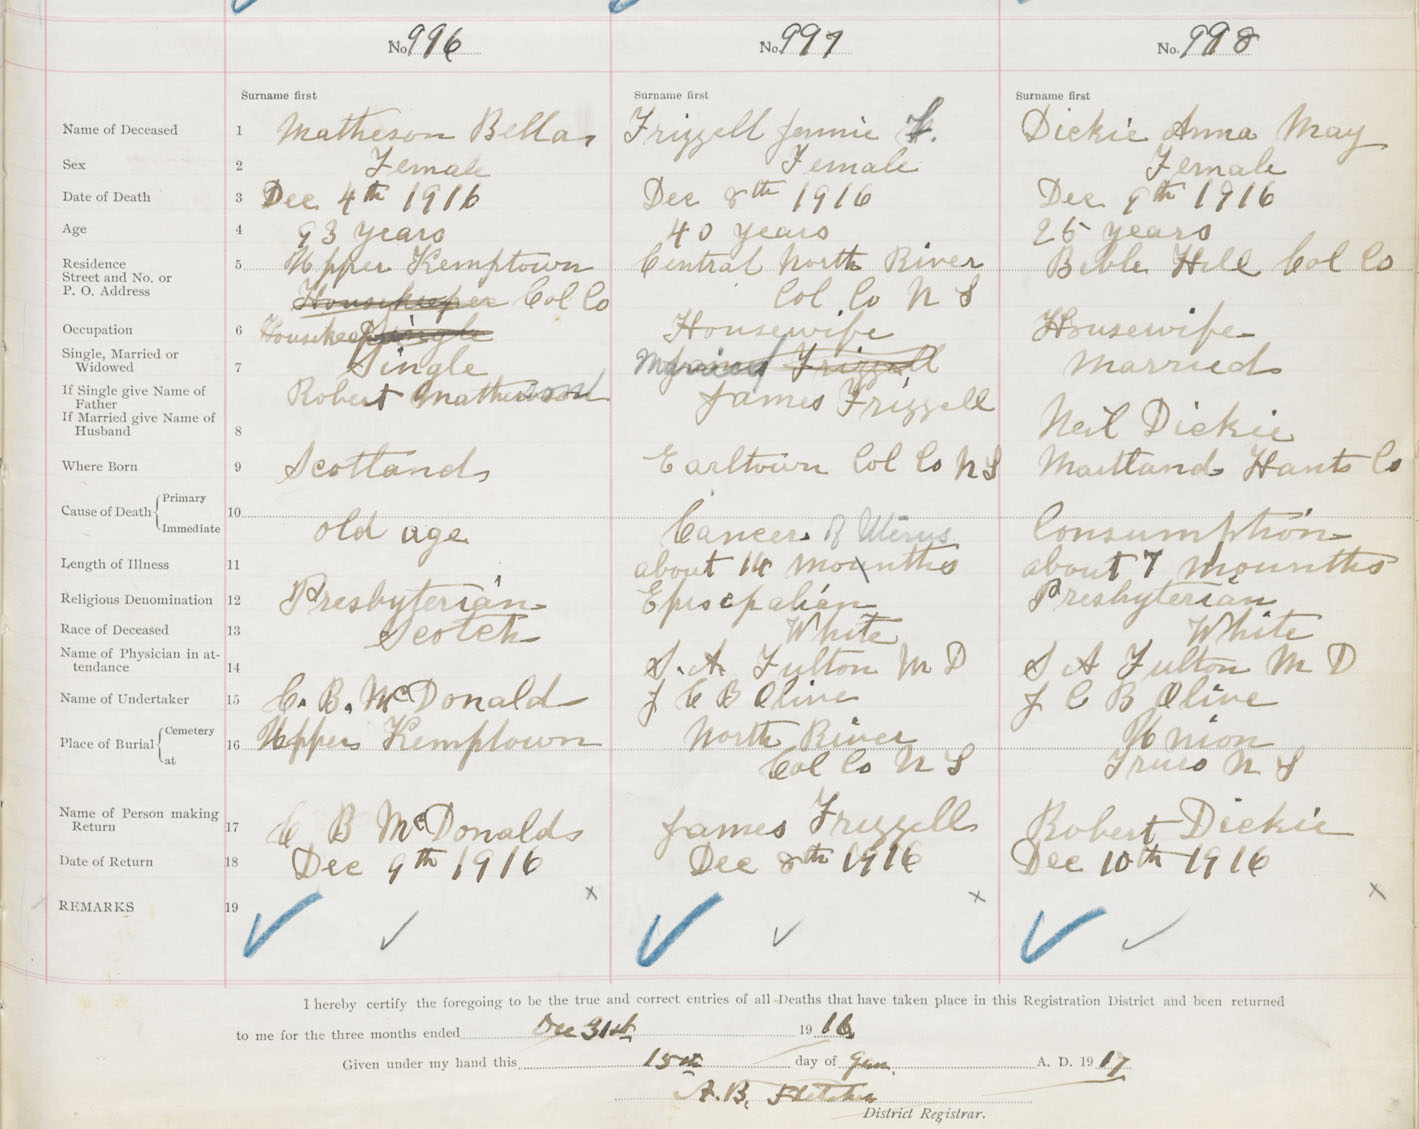 No. 996 No. 997 No. 998
Surname first Surname first Surname first
Name of Deceased 1 Matheson Bella Frizzell Jennie F. Dickie Anna May
Sex 2 Female Female Female
Date of Death 3 Dec 4th 1916 Dec 8th 1916 Dec 9th 1916
Age 4 93 years 40 years 25 years
Residence 5 Upper Kemptown Central North River Bible Hill Col Co
Street and No. or
P. O. Address Housekeeper Col Co Col Co N S
Occupation 6 Housekeep Single Housewife Housewife
Single, Married or
Widowed 7 Single Married Frizzell Married
If Single give Name of
Father Robert Mathewson James Frizzell
If Married give Name of
Husband 8 Neil Dickie
Where Born 9 Scotland Earltown Col Co N S Maitland Hants Co
Cause of Death Primary 10
Immediate old age Cancer of Uterus Consumption
Length of Illness 11 about 14 mounths about 7 mounths
Religious Denomination 12 Presbyterian Episcpalian Presbyterian
Race of Deceased 13 Scotch White White
Name of Physician in at-
tendance 14 S. A. Fulton M D S A Fulton M D
Name of Undertaker 15 C. B. McDonald J C B Olive J C B Olive
Place of Burial Cemetery 16 Upper Kemptown North River Union
at Col Co N S Truro N S
Name of Person making
Return 17 C B McDonald James Frizzell Robert Dickie
Date of Return 18 Dec 9th 1916 Dec 8th 1916 Dec 10th 1916
REMARKS 19
I hereby certify the foregoing to be the true and correct entries of all Deaths that have taken place in this Registration District and been returned
to me for the three months ended Dec 31st 19 16
Given under my hand this 15th day of Jan. A. D. 19 17
A. B. Fletcher
District Registrar.